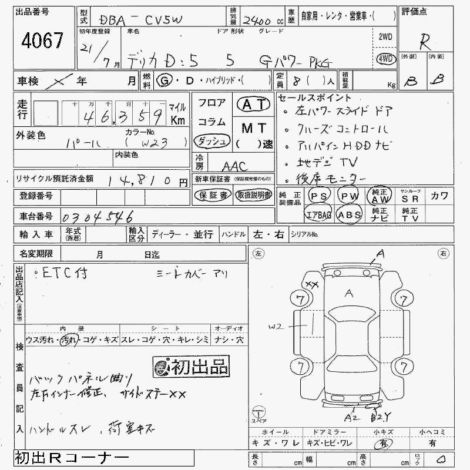 出品番号 4067
型式 DBA-CV5W 排気量 2400cc 車歴 自家用・レンタ・営業車・( ) 評価点 R
初年度登録 21/7月 車名 デリカD:5 ドア 5 形状 グレード GパワーPKG 2WD 4WD
外 B 内 B
車検 × 年 月 燃料 G・D・ハイブリッド・( ) 定員 8( )人 積載量 Kg
走行 十万 万 千 百 十 46,359 マイル Km
フロア コラム ダッシュ AT MT ( )速
外装色 パール カラーNo (W23)
内装色
冷房 AAC
セールスポイント
・左パワースライドドア
・クルーズコントロール
・アルパインHDDナビ
・地デジTV
・後席モニター
リサイクル預託済金額 14,810円
新車保証書(継承可能なもの) 保証書 取扱説明書
登録番号
車台番号 0304546
純正装備品 PS PW 純正AW サンルーフSR カワ
エアBAG ABS 純正ナビ 純正TV
輸入車 年式(西暦) 輸入区分 ディーラー・並行 ハンドル 左・右 シリアルNo.
名変期限 月 日迄
出品店記入 (注意事項)
・ETC付 シートカバーアリ
検査員記入
内装 シート オーディオ
ウス汚れ・汚れ・コゲ・キズ スレ・コゲ・穴・キレ・シミ ナシ・穴
初出品
バックパネル曲り
左右インナー修正、サイドステーXX
ハンドルスレ、荷室キズ
左 右
A
A
XX
W2
7 7
7 7
A2 B2Y
T スペア
ホイール ドアミラー 小キズ 小ヘコミ
キズ・ワレ キズ・ヒビ・ワレ 有 有
初出Rコーナー
長さ cm 幅 cm 高さ cm